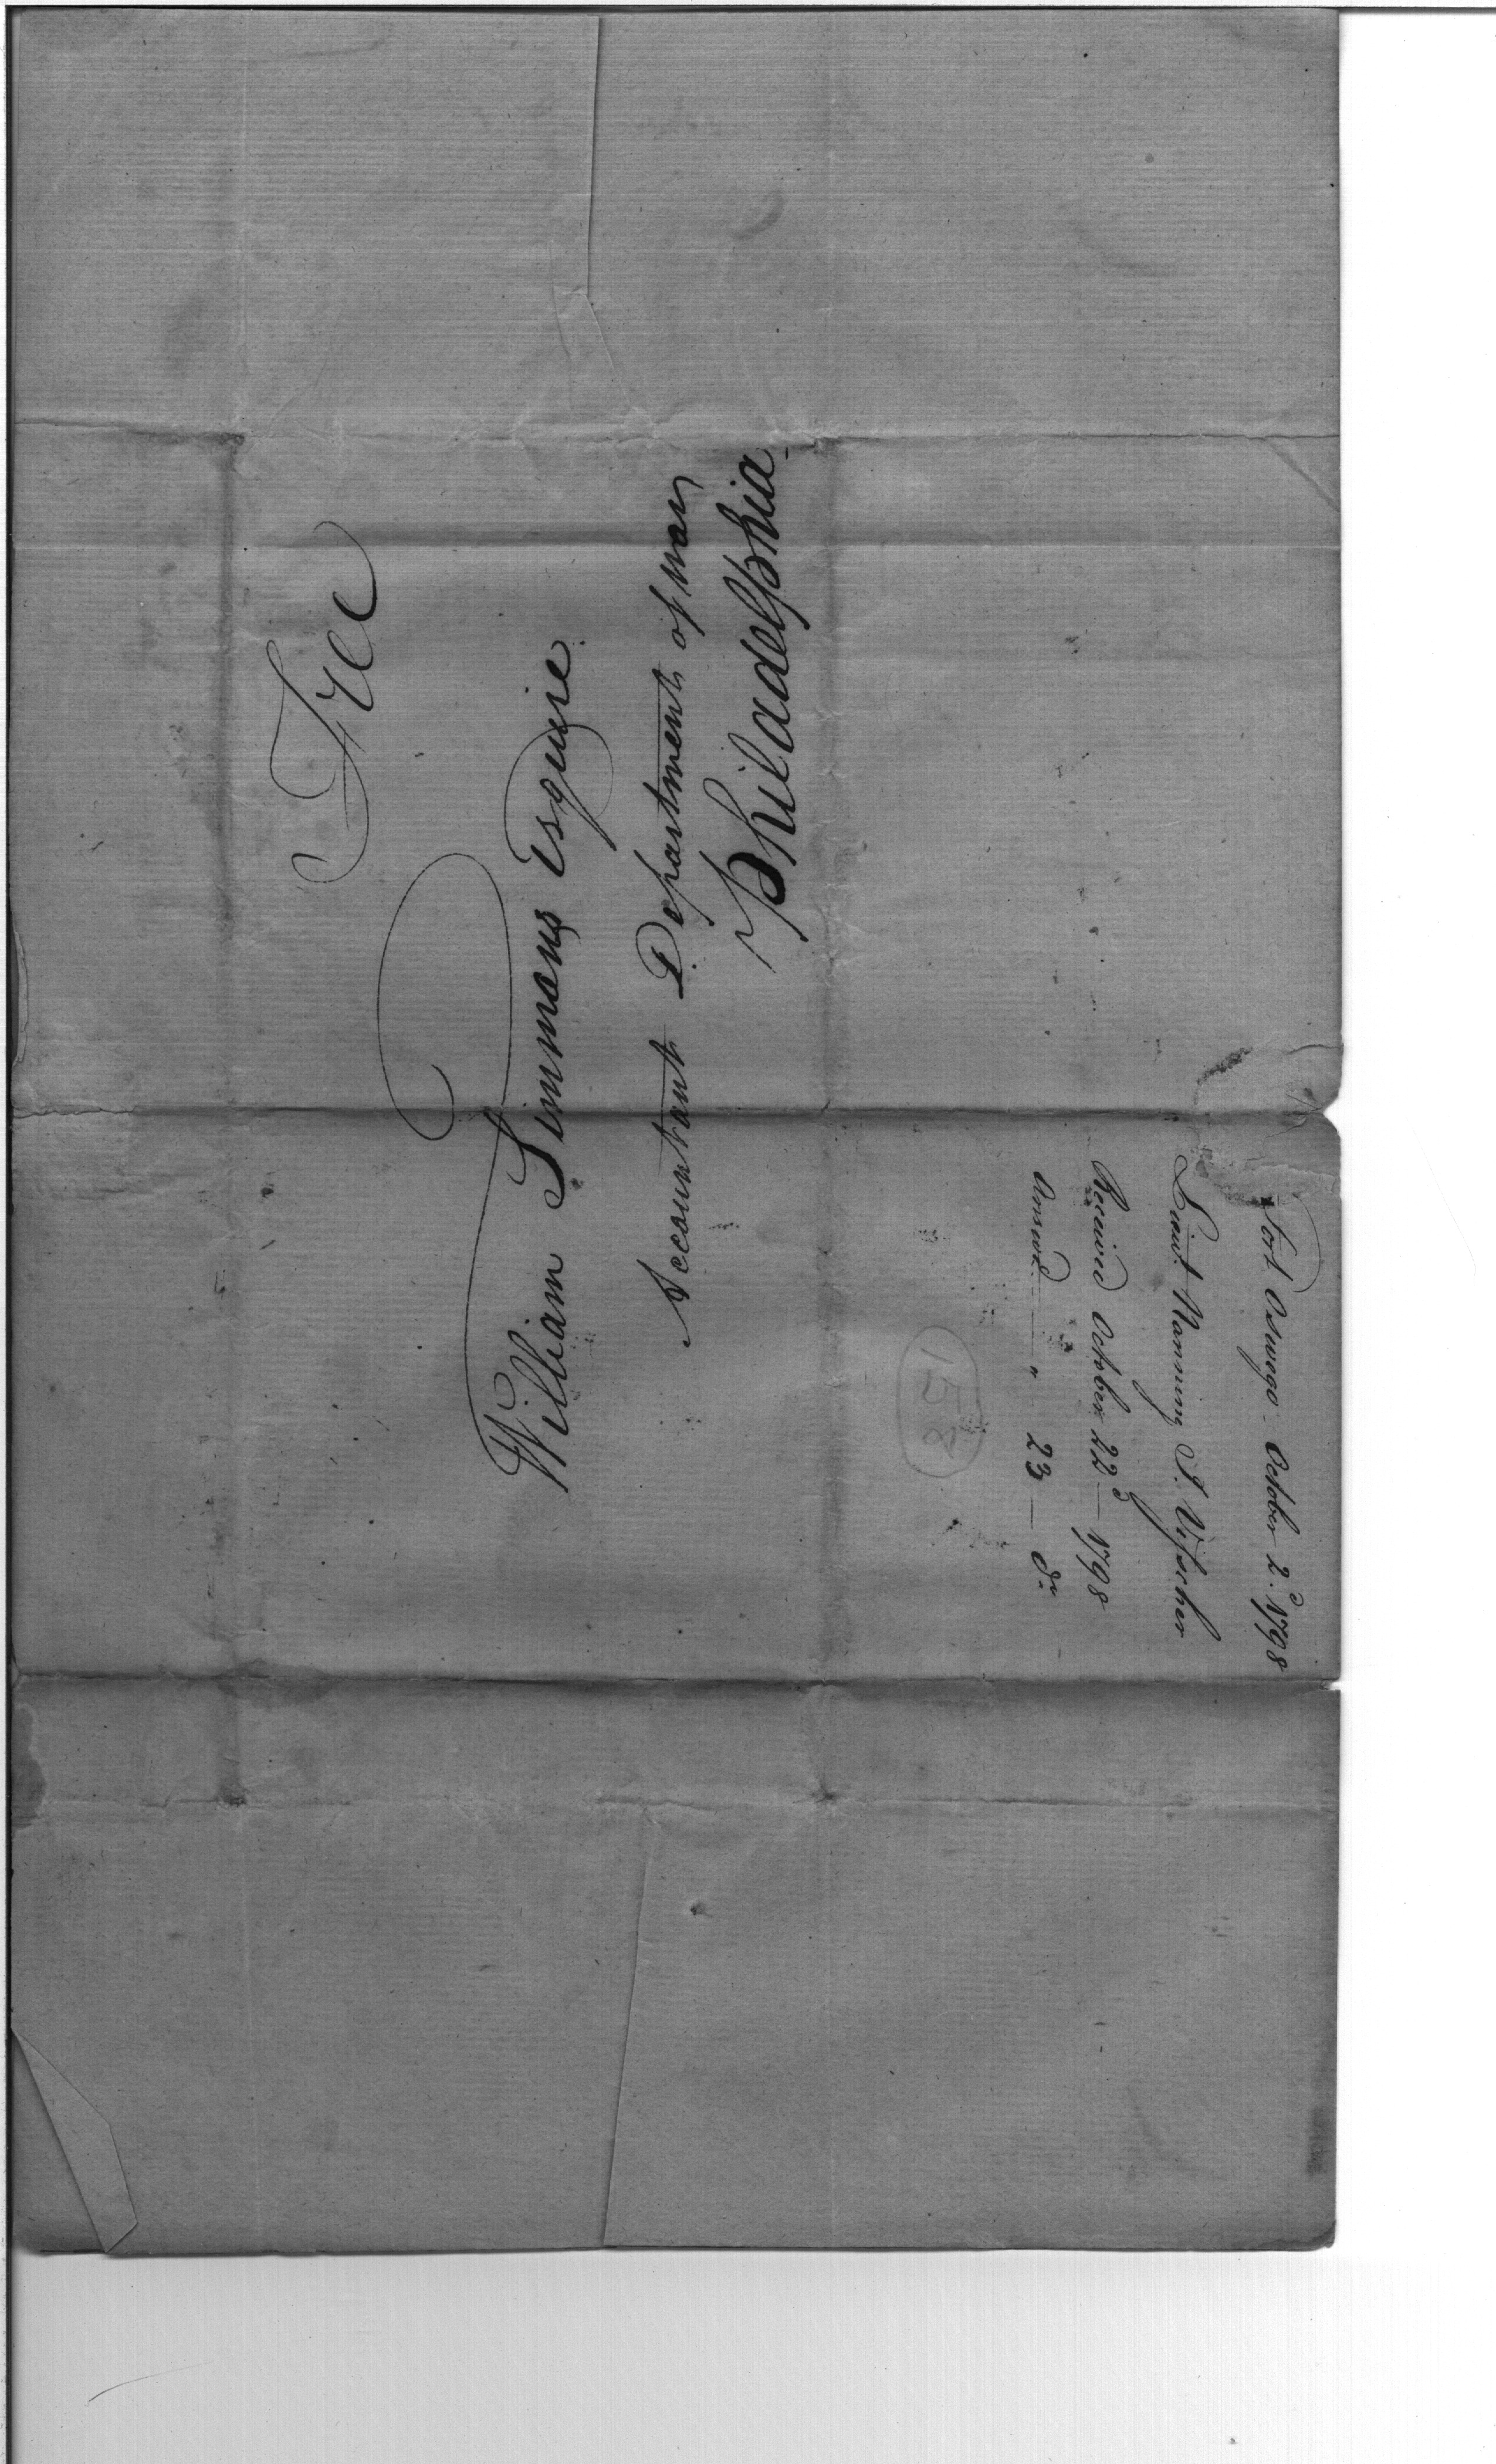 Free
William Simmons Esquire
Accountant Department of war
Philadelphia
Fort Oswego October 2d. 1798
Lieut. Nanning J. Visscher
Received October 22d — 1798
Answd. — " 23 — do
158